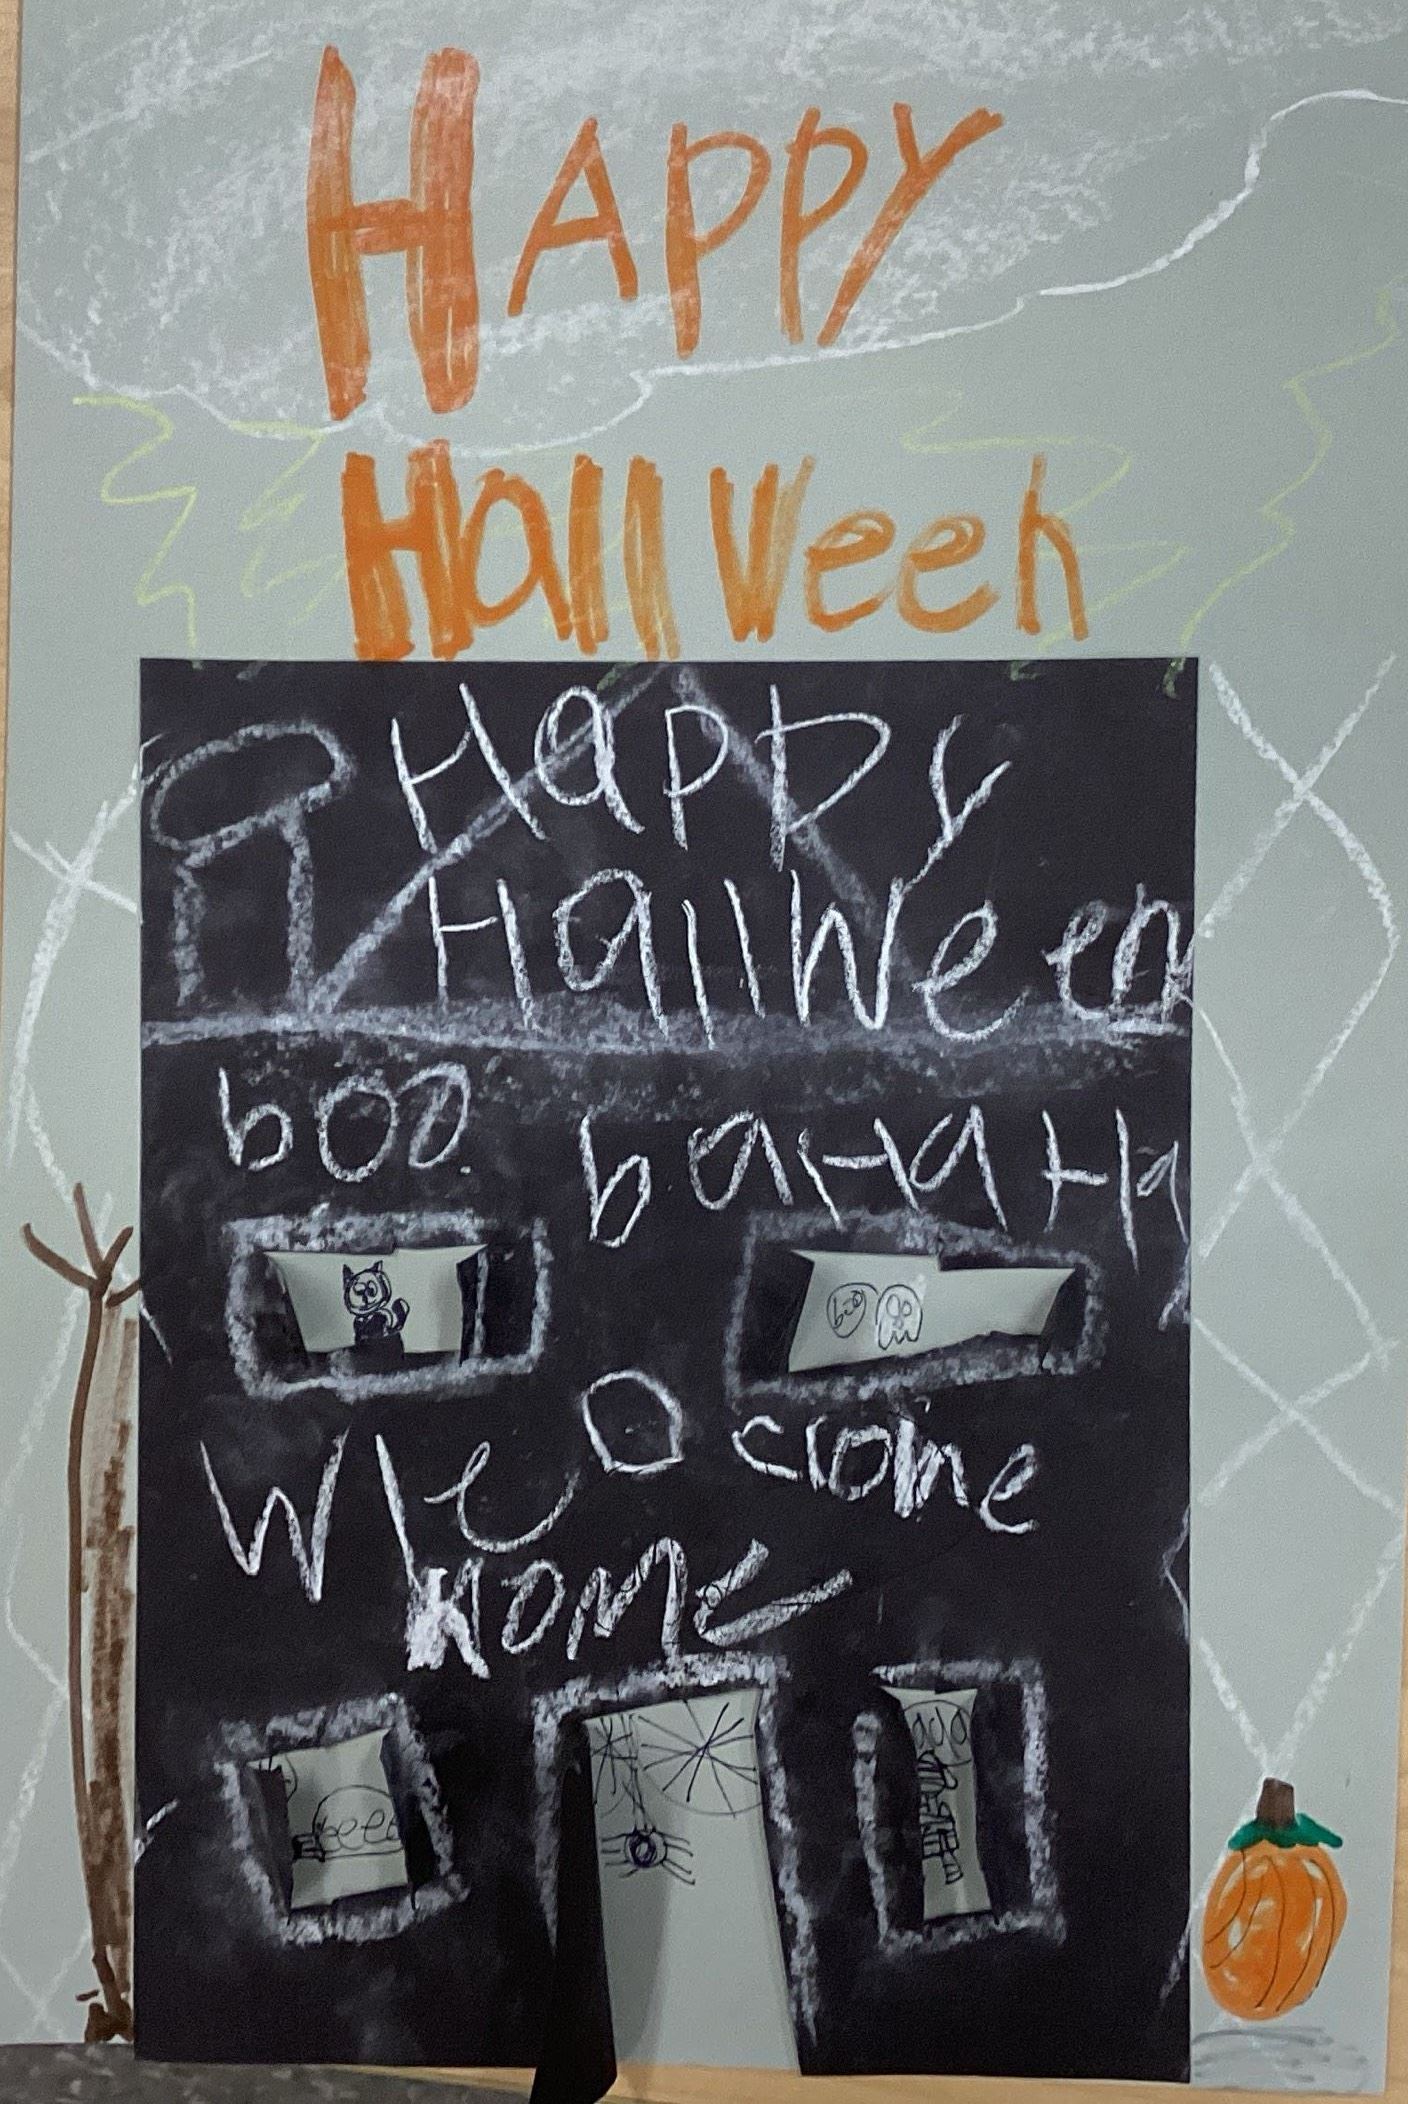 HAPPY
Hallween
Happy
Hallween
boo
baHaHa
Wleocome
HOME
boo